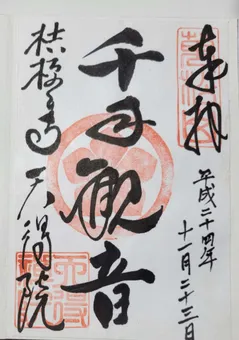 奉拝
平成二十四年
十一月二十三日
千手観音
天得院